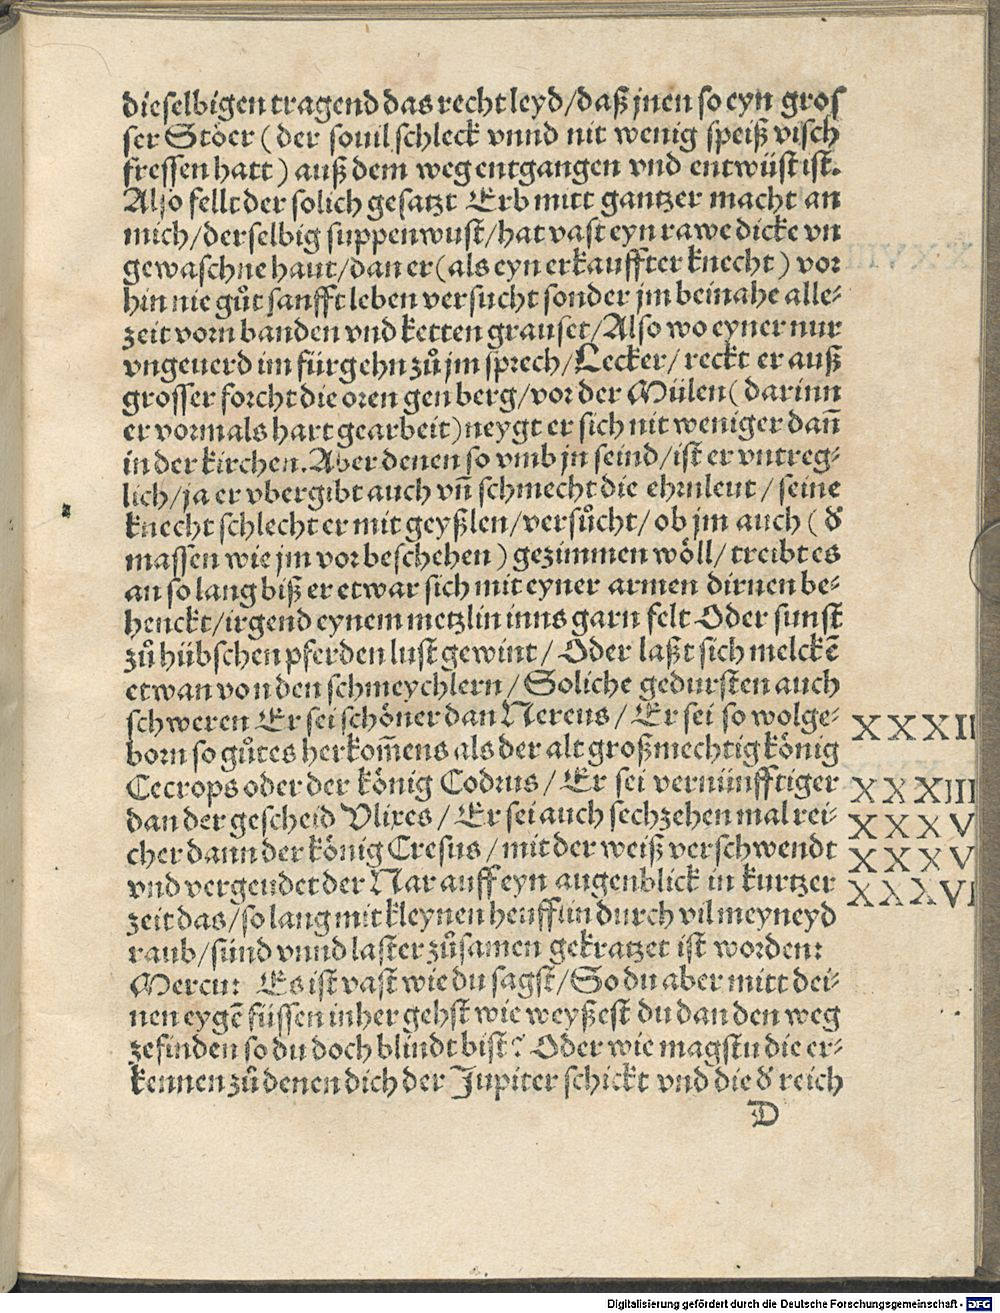 die selbigen tragend das recht leyd/daß jnen so eyn gros
ser Stöer (der souil schleck vnnd nit wenig speiß visch
fressen hatt) auß dem weg entgangen vnd entwüst ist.
Also fellt der solich gesatzt Erb mitt gantzer macht an
mich/der selbig suppenwust/hat vast eyn rawe dicke vn
gewaschne haut/dan er (als eyn erkauffter knecht) vor
hin nie gůt sanfft leben versucht sonder jm beinahe alle-
zeit vorn banden vnd ketten grauset/Also wo eyner nur
vngeuerd im fürgehn zů jm sprech/Lecker/reckt er auß
grosser forcht die oren gen berg/vor der Mülen (darinn
er vormals hart gearbeit) neygt er sich nit weniger dañ
in der kirchen. Aber denen so vmb jn seind/ist er vntreg-
lich/ja er vbergibt auch vñ schmecht die ehrnleut/seine
knecht schlecht er mit geyßlen/versůcht/ob jm auch (d'
massen wie jm vor beschehen) gezimmen wöll/treibt es
an so lang biß er etwar sich mit eyner armen dirnen be-
henckt/irgend eynem metzlin inns garn felt Oder sunst
zů hübschen pferden lust gewint/Oder laßt sich melckē
etwan von den schmeychlern/Soliche gedursten auch
schweren Er sei schöner dan Nereus/Er sei so wolge- XXXII
born so gůtes herkom̄ens als der alt großmechtig könig
Cecrops oder der könig Codrus/Er sei vernünfftiger XXXIII
dan der gescheid Vlixes/Er sei auch sechzehen mal rei- XXXV
cher dann der könig Cresus/mit der weiß verschwendt XXXV
vnd vergeudet der Nar auff eyn augenblick in kurtzer XXXVI
zeit das/so lang mit kleynen heufflin durch vil meyneyd
raub/sünd vnnd laster zůsamen gekratzet ist worden:
Mercu: Es ist vast wie du sagst/So du aber mitt dei-
nen eygē füssen inher gehst wie weyßest du dan den weg
zefinden so du doch blindt bist? Oder wie magstu die er-
kennen zů denen dich der Jupiter schickt vnd die d' reich
D
Digitalisierung gefördert durch die Deutsche Forschungsgemeinschaft - DFG